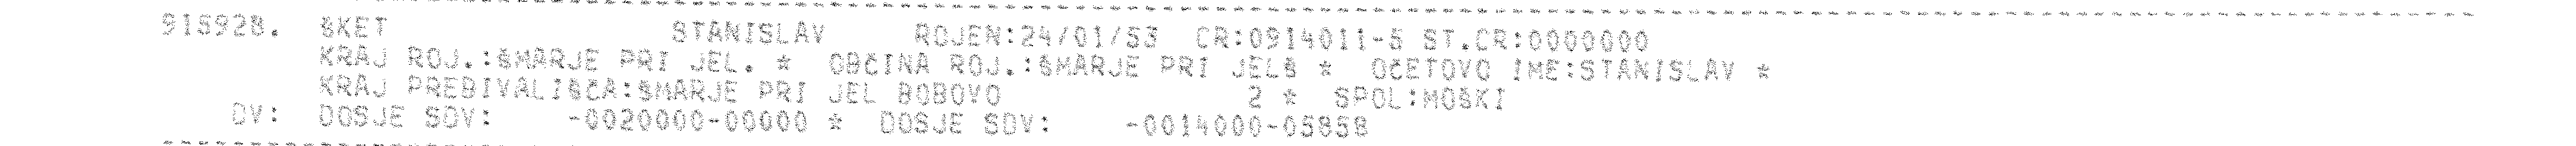 915928. ŠKET STANISLAV ROJEN:24/01/53 CR:0914011-5 ST.CR:0000000
KRAJ ROJ.:ŠMARJE PRI JEL. * OBČINA ROJ.:ŠMARJE PRI JELŠ * OČETOVO IME:STANISLAV *
KRAJ PREBIVALIŠČA:ŠMARJE PRI JEL BOBOVO 2 * SPOL:MOŠKI
DV: DOSJE SDV: -0020000-00000 * DOSJE SDV: -0014000-05858